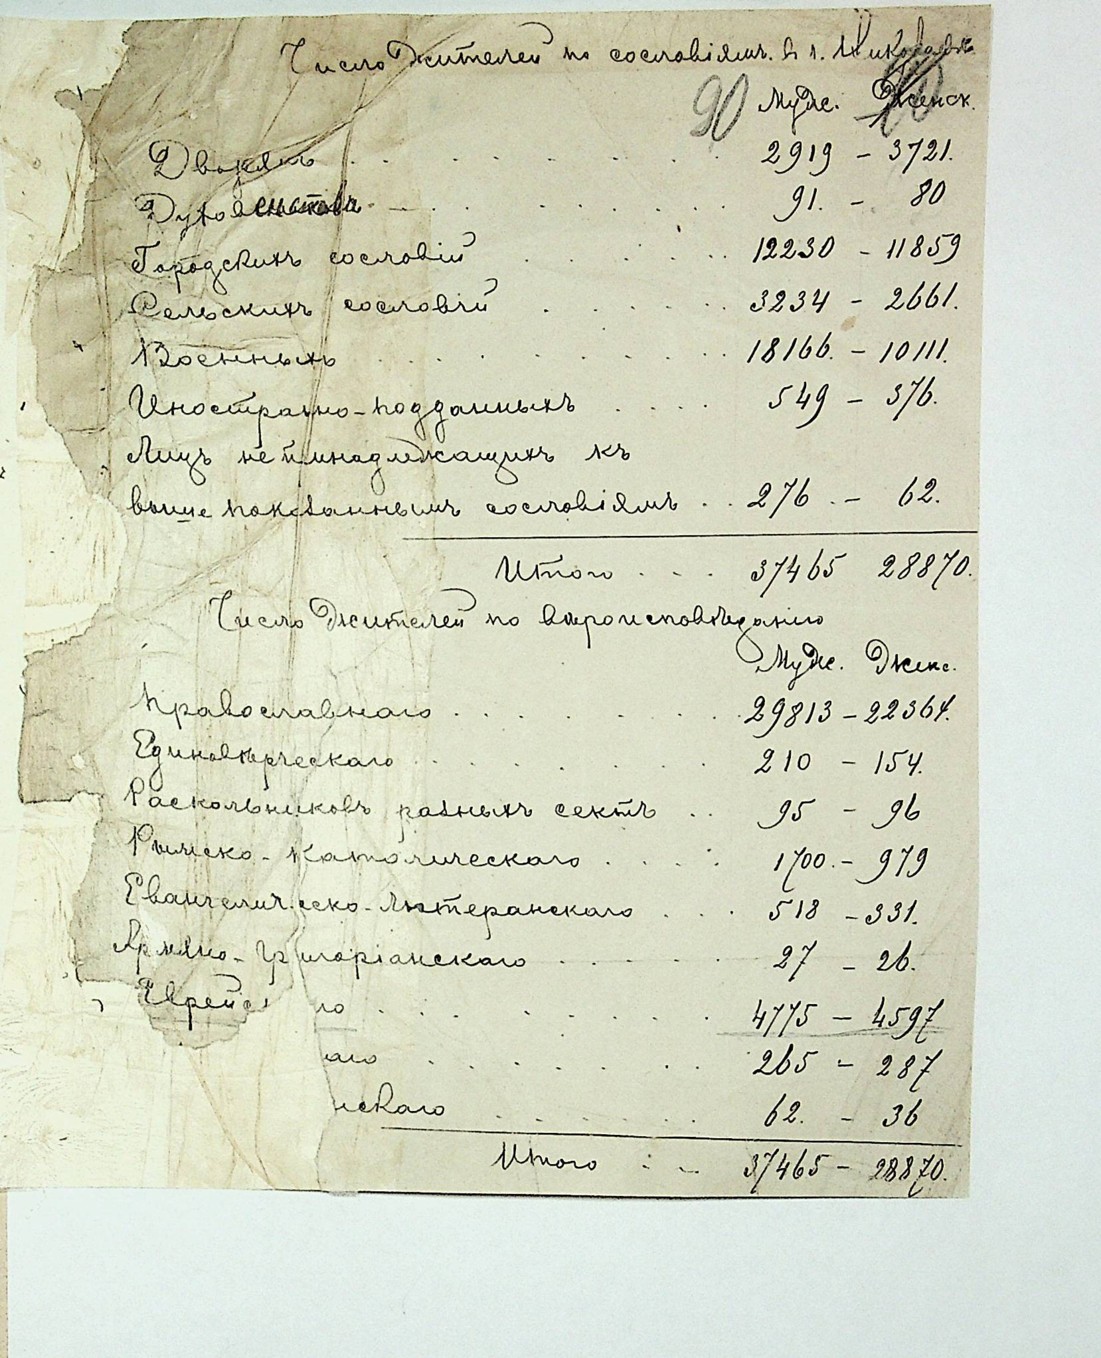 Число жителей по сословіямъ въ г. Николаевѣ
90
Муж. Женск.
Дворянъ . . . . . . . . 2919 – 3721.
Духовенства . . . . . . . 91. – 80
Городскихъ сословій . . . . . 12230 – 11859
Сельскихъ сословій . . . . . 3234 – 2661.
Военныхъ . . . . . . . . 18166. – 10111.
Иностранно-подданныхъ . . . . 549 – 376.
Лицъ непринадлежащихъ къ
выше показаннымъ сословіямъ . . 276 . – 62.
Итого . . . 37465 28870.
Число жителей по вѣроисповѣданію
Муж. Женс.
Православнаго . . . . . . . 29813 – 22364.
Единовѣрческаго . . . . . . . 210 – 154.
Раскольниковъ разныхъ сектъ . . 95 – 96
Римско-Католическаго . . . . 1700. – 979
Евангелическо-Лютеранскаго . . . 518 – 331.
Армяно-Григоріанскаго . . . . . 27 – 26.
Еврейс го . . . . . . . 4775 – 4597
аго . . . . . . 265 – 287
искаго . . . . . . 62. – 36
Итого . . . 37465 – 28870.